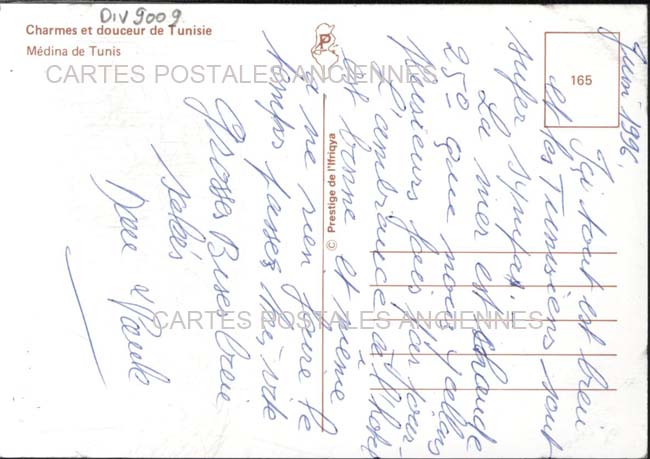 DIV 9009
Charmes et douceur de Tunisie
Médina de Tunis
P
165
CARTES POSTALES ANCIENNES
© Prestige de l'Ifriqya
Juin 1996
Içi tout est bien
et les Tunisiens sont
super sympas.
La mer est chaude
25° que nous y allons
plusieurs fois par jour
L'ambiance à l'hotel
est bonne et meme
a ne rien faire le
temps passe très vite
Grosses Bises
salés
&
CARTES POSTALES ANCIENNES